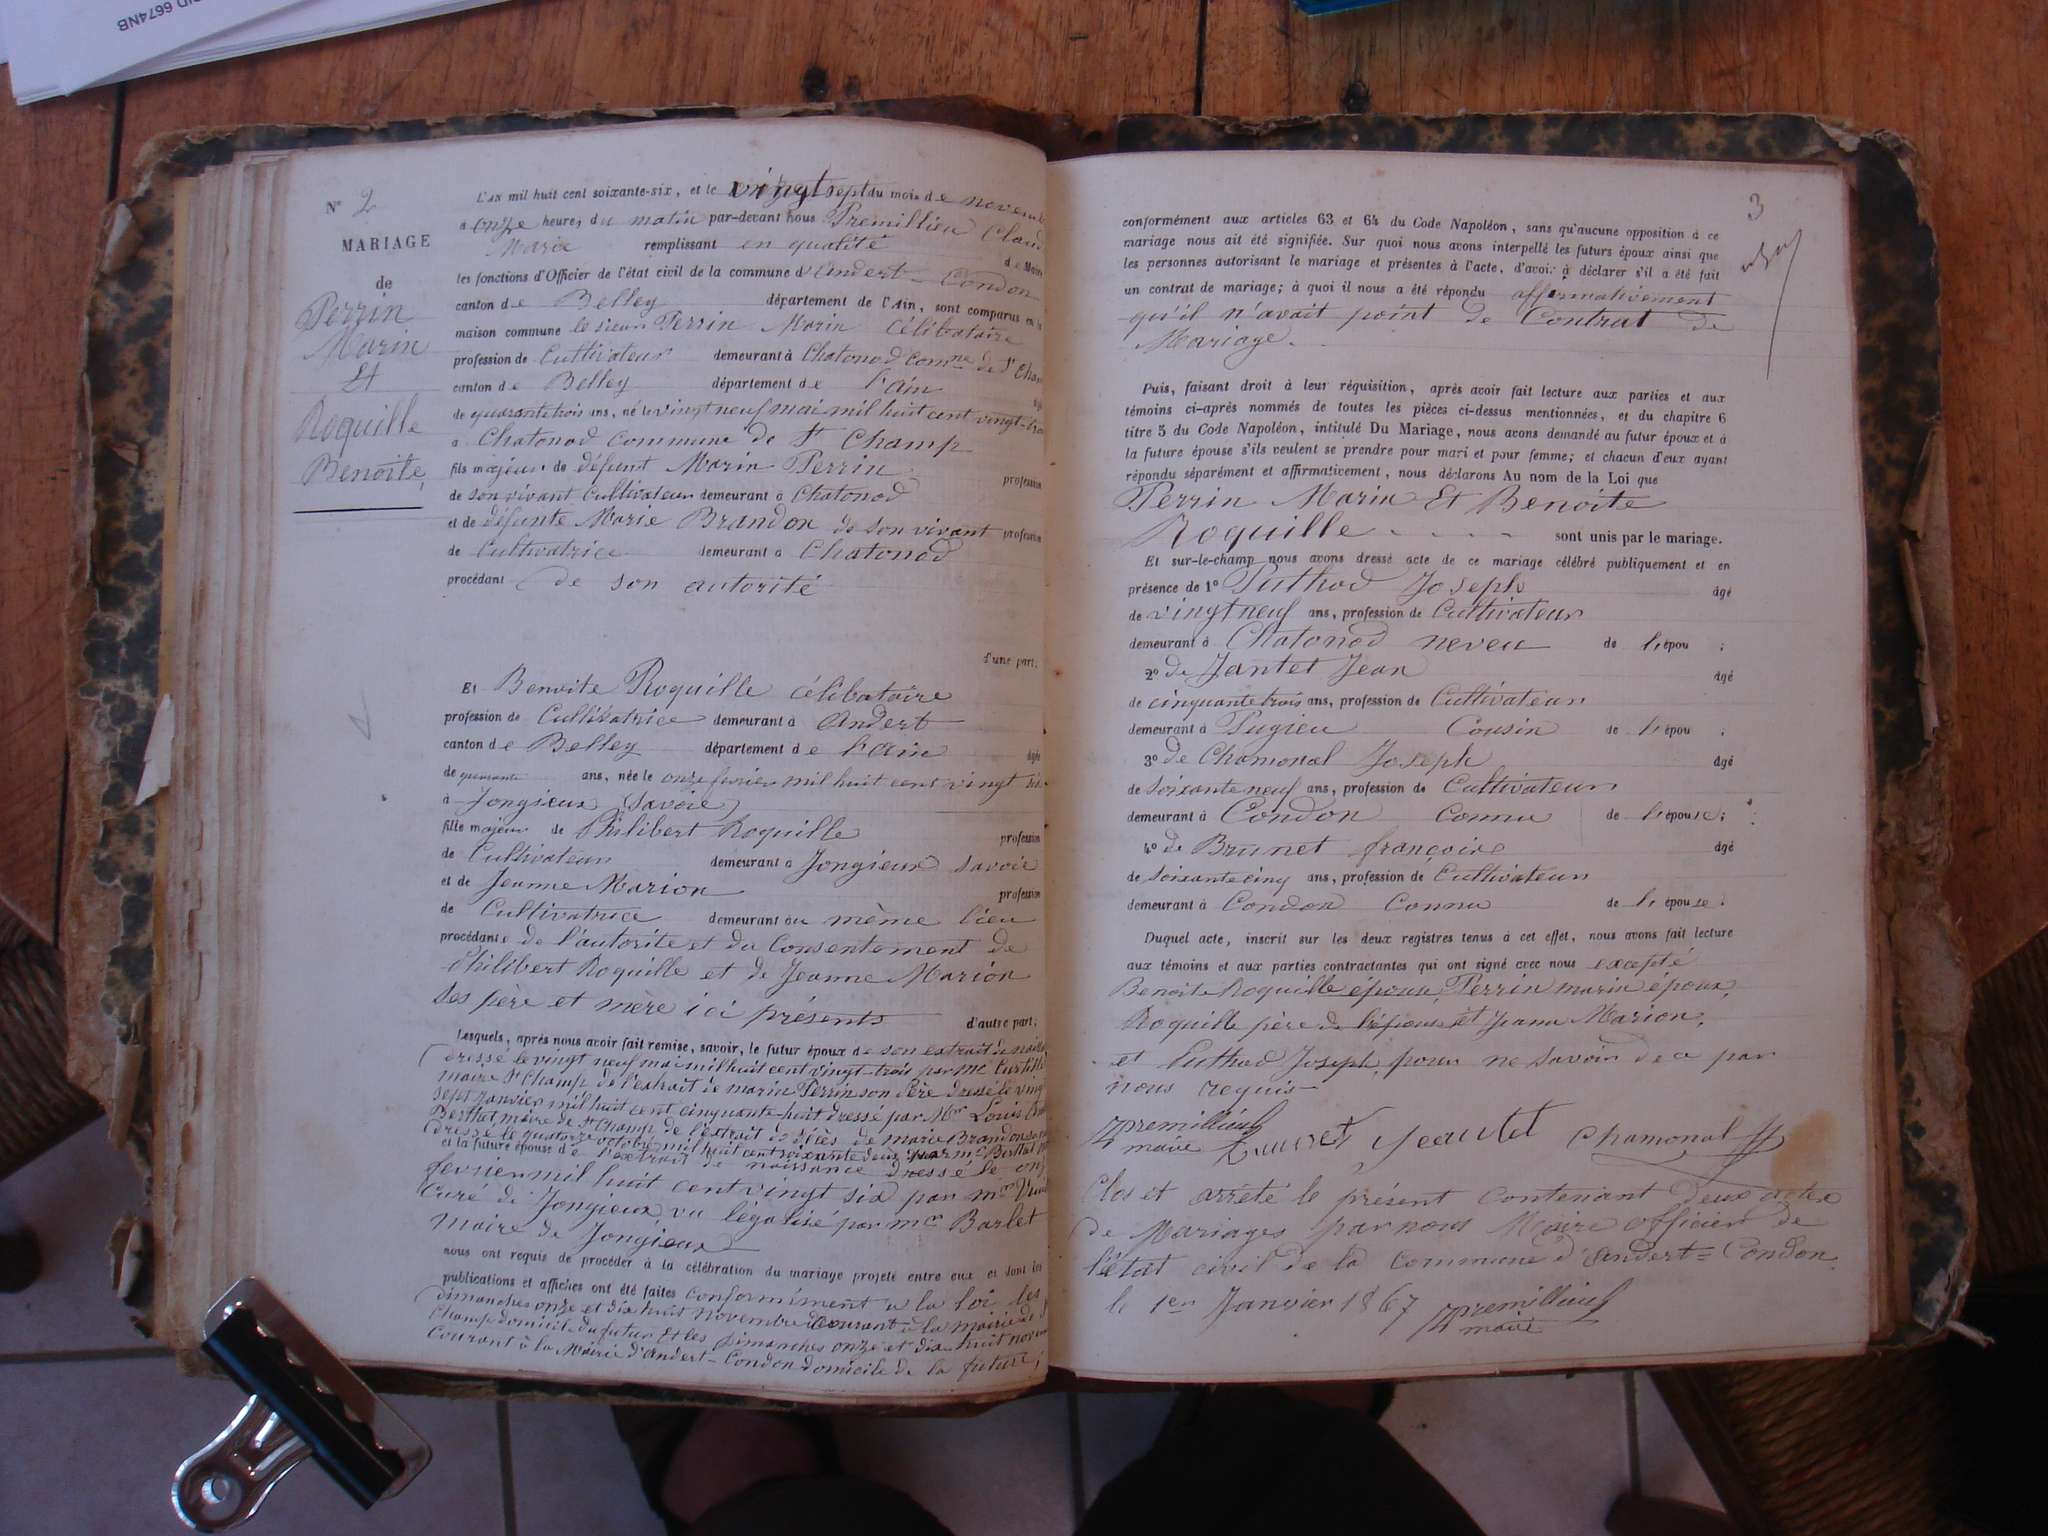 6674NB
N° 2
MARIAGE
de
Perrin
Marin
Et
Roquille
Benoite
L'AN mil huit cent soixante-six, et le vingt sept du mois de novem
à onze heures du matin par-devant nous Premillieu Claud
Marie remplissant en qualité de Maire
les fonctions d'Officier de l'état civil de la commune d'Andert-Condon
canton de Belley département de l'Ain, sont comparus en la
maison commune le sieur Perrin Marin Célibataire
profession de Cultivateur demeurant à Chatonod Comne de St Cham
canton de Belley département de l'ain
de quarante trois ans, né le vingt neuf mai mil huit cent vingt-tro
à Chatonod Commune de St Champ
fils majeur de défunt Marin Perrin profession
de son vivant Cultivateur demeurant à Chatonod
et de défunte Marie Brandon de son vivant profession
de Cultivatrice demeurant à Chatonod
procédant de son autorité
d'une part;
Et Benoite Roquille célibataire
profession de Cultivatrice demeurant à Andert
canton de Belley département de l'ain âgée
de quarante ans, née le onze fevrier mil huit cent vingt six
à Jongieux (Savoie)
fille majeur de Philibert Roquille profession
de Cultivateur demeurant à Jongieux Savoie
et de Jeanne Marion profession
de Cultivatrice demeurant au même lieu
procédante de l'autorite et du Consentement de
Philibert Roquille et de Jeanne Marion
ses père et mère ici présents d'autre part;
Lesquels, après nous avoir fait remise, savoir, le futur époux de son extrait de
dressé le vingt neuf mai mil huit cent vingt-trois par mr
maire St Champ de l'extrait de marin Perrin son Père dressé le ving
sept Janvier mil huit cent cinquante-huit dressé par Mr Louis
Berthet maire de St Champ, de l'extrait de décès de marie Brandon
dressé le quatorze octobre mil huit cent soixante deux par mr Berthet
et la future épouse de l'extrait de naissance dressé le on
fevrier mil huit cent vingt six par mr
Curé de Jongieux, vu légalisé par mr Barlet
maire de Jongieux
nous ont requis de procéder à la célébration du mariage projeté entre eux et dont les
publications et affiches ont été faites conformément a la loi les
dimanches onze et dix huit novembre courant à la mairie de St
Champ domicile du futur Et les Dimanches onze et dix huit novem
Courant à la Mairie d'Andert-Condon domicile de la future;
3
conformément aux articles 63 et 64 du Code Napoléon, sans qu'aucune opposition à ce
mariage nous ait été signifiée. Sur quoi nous avons interpellé les futurs époux ainsi que
les personnes autorisant le mariage et présentes à l'acte, d'avoir à déclarer s'il a été fait
un contrat de mariage; à quoi il nous a été répondu affirmativement
qu'il n'avait point de Contrat de
Mariage.
Puis, faisant droit à leur réquisition, après avoir fait lecture aux parties et aux
témoins ci-après nommés de toutes les pièces ci-dessus mentionnées, et du chapitre 6
titre 5 du Code Napoléon, intitulé Du Mariage, nous avons demandé au futur époux et à
la future épouse s'ils veulent se prendre pour mari et pour femme; et chacun d'eux ayant
répondu séparément et affirmativement, nous déclarons Au nom de la Loi que
Perrin Marin Et Benoite
Roquille sont unis par le mariage.
Et sur-le-champ nous avons dressé acte de ce mariage célébré publiquement et en
présence de 1° Puthod Joseph âgé
de vingt neuf ans, profession de Cultivateur
demeurant à Chatonod neveu de l'épou ;
2° de Jantet Jean âgé
de cinquante trois ans, profession de Cultivateur
demeurant à Pugieu Cousin de l'épou ;
3° de Chamonal Joseph âgé
de soixante neuf ans, profession de Cultivateur
demeurant à Condon Connu de l'épouse;
4° de Brunet françois âgé
de soixante cinq ans, profession de Cultivateur
demeurant à Condon Connu de l'épouse.
Duquel acte, inscrit sur les deux registres tenus à cet effet, nous avons fait lecture
aux témoins et aux parties contractantes qui ont signé avec nous excepté
Benoite Roquille épouse, Perrin marin époux,
Roquille père de l'épouse et Jeanne Marion,
et Puthod Joseph, pour ne savoir de ce par
nous requis
premillieu
maire Brunet Jeantet Chamonal
Clos et arrêté le présent Contenant deux actes
de Mariages par nous Maire officier de
l'état civil de la Commune d'Andert-Condon
le 1er Janvier 1867 premillieu
maire